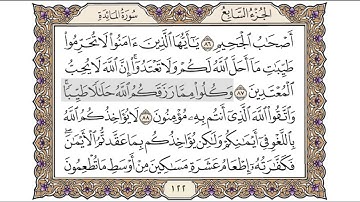 الجزء السابع
سورة المائدة
أَصْحَٰبُ ٱلْجَحِيمِ ٨٦ يَٰٓأَيُّهَا ٱلَّذِينَ ءَامَنُوا۟ لَا تُحَرِّمُوا۟
طَيِّبَٰتِ مَآ أَحَلَّ ٱللَّهُ لَكُمْ وَلَا تَعْتَدُوٓا۟ إِنَّ ٱللَّهَ لَا يُحِبُّ
ٱلْمُعْتَدِينَ ٨٧ وَكُلُوا۟ مِمَّا رَزَقَكُمُ ٱللَّهُ حَلَٰلًا طَيِّبًا
وَٱتَّقُوا۟ ٱللَّهَ ٱلَّذِىٓ أَنتُم بِهِۦ مُؤْمِنُونَ ٨٨ لَا يُؤَاخِذُكُمُ ٱللَّهُ
بِٱللَّغْوِ فِىٓ أَيْمَٰنِكُمْ وَلَٰكِن يُؤَاخِذُكُم بِمَا عَقَّدتُّمُ ٱلْأَيْمَٰنَ
فَكَفَّٰرَتُهُۥٓ إِطْعَامُ عَشَرَةِ مَسَٰكِينَ مِنْ أَوْسَطِ مَا تُطْعِمُونَ
١٢٢